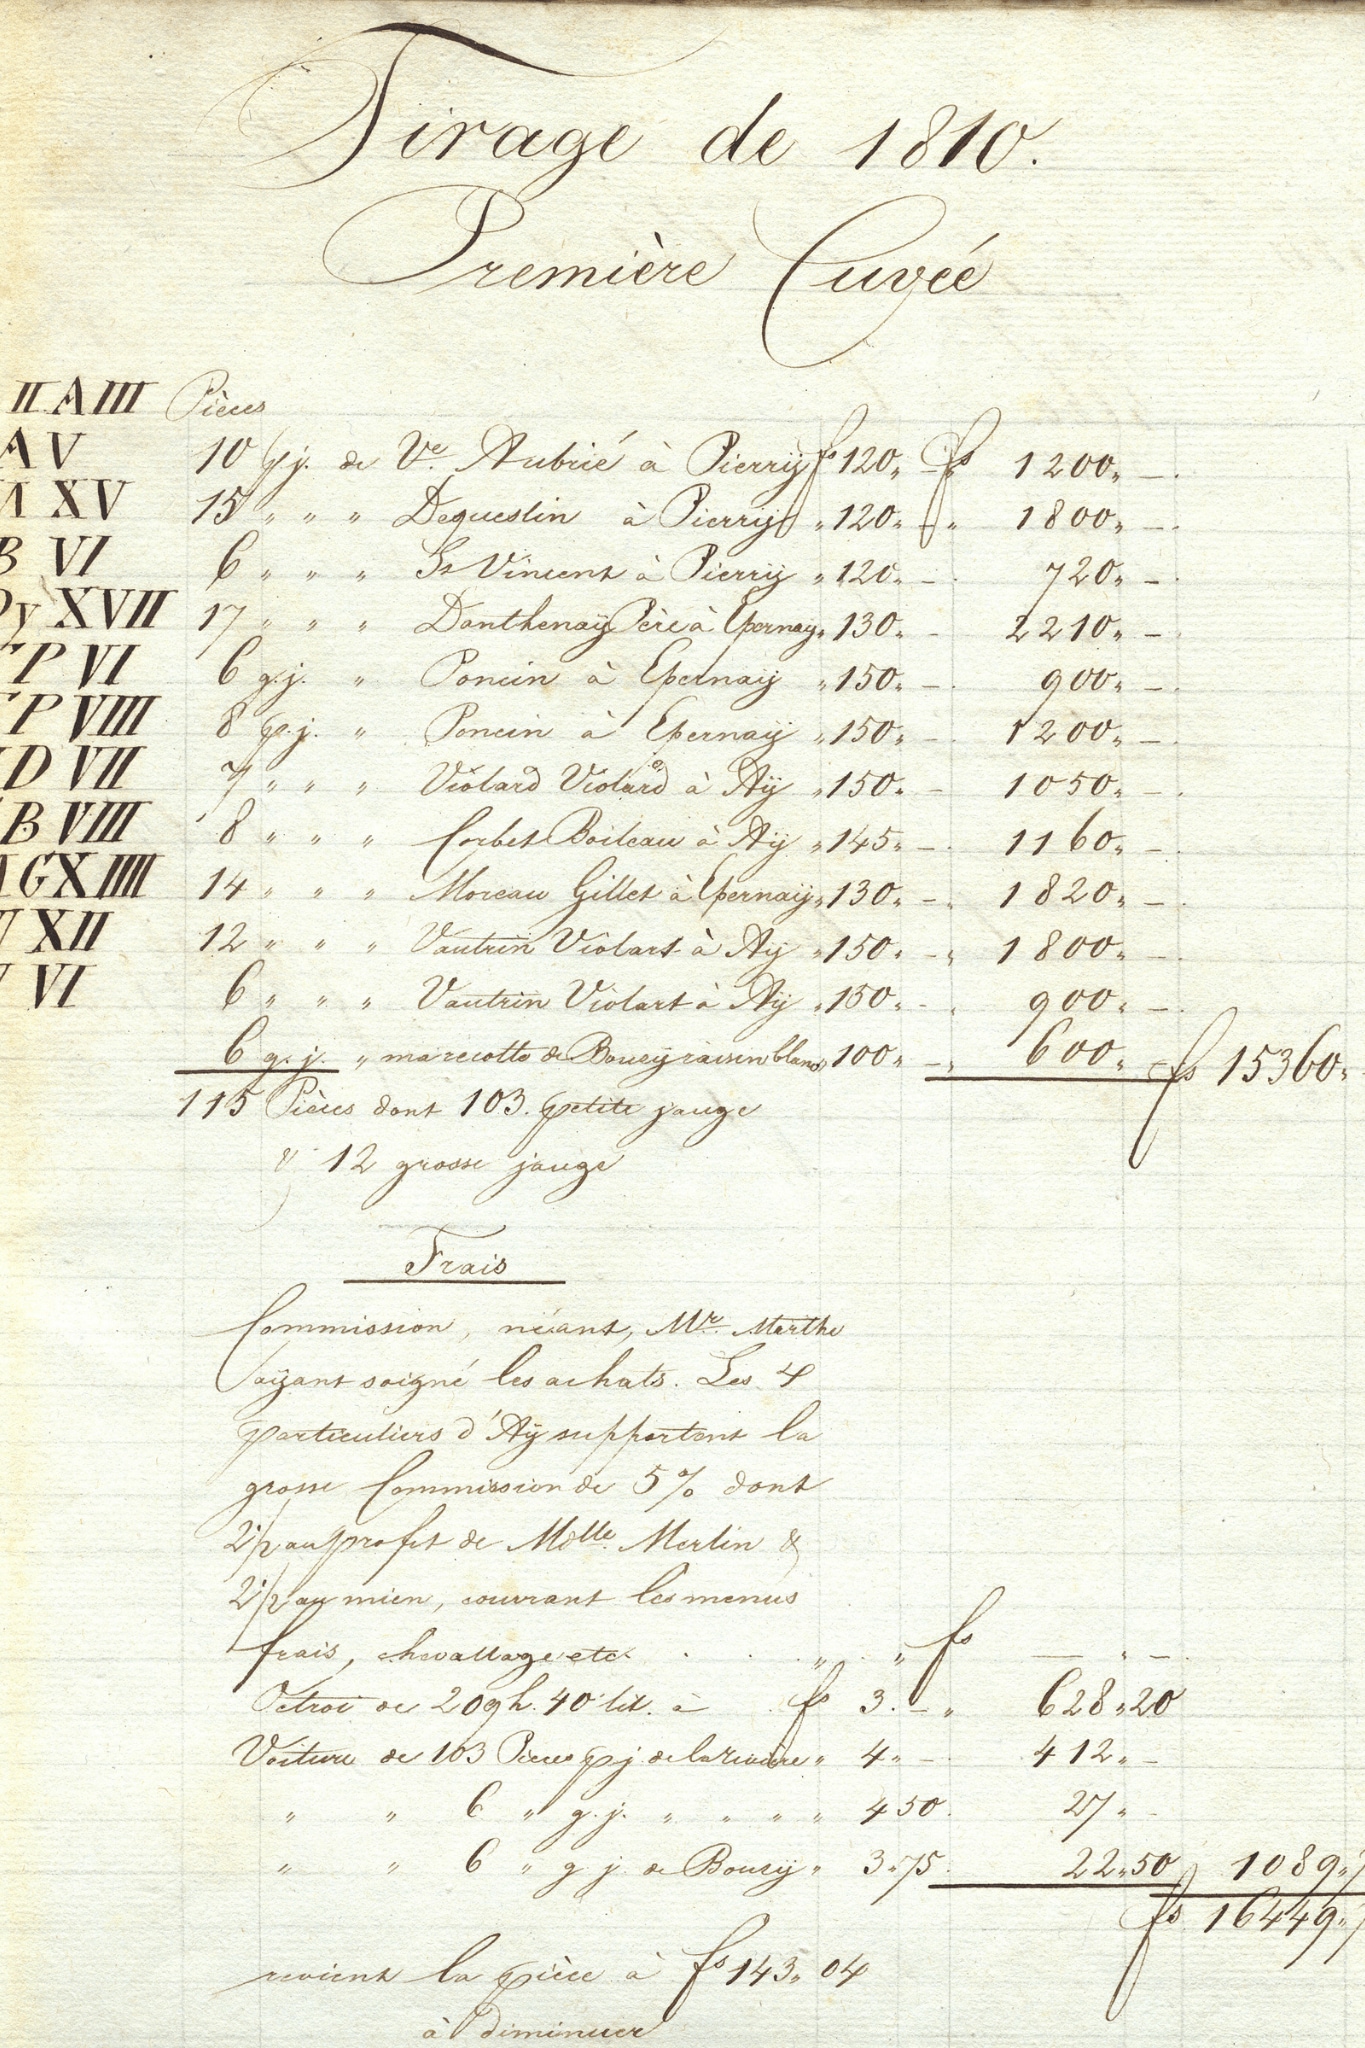 Tirage de 1810.
Première Cuvéé
II A III Pièces
A V 10 p.j. de Ve. Aubrié à Pierry fs 120 " — fs 1200 " —.
XV 15 " " " Dequestin à Pierry " 120 " — " 1800 " —.
B VI 6 " " " St Vincent à Pierry " 120 " — 720 " —
Dy XVII 17 " " " Danthenaÿ Père à Epernay " 130 " — 2210 " —
P VI 6 g.j. " Poncin à Epernaÿ " 150 " — 900 " —
P VIII 8 p.j. " Poncin à Epernaÿ " 150 " — 1200 " —
D VII 7 " " " Violard Violard à Aÿ " 150 " — 1050 " —
B VIII 8 " " " Corbet Boileau à Aÿ " 145 " — 1160 " —
AG XIIII 14 " " " Moreau Gillet à Epernaÿ " 130 " — " 1820 " —
XII 12 " " " Vautrin Violart à Aÿ " 150 " — " 1800 " —
VI 6 " " " Vautrin Violart à Aÿ " 150 " — " 900 " —
6 g.j. " marcotte de Bouzÿ raisin blanc " 100 " — " 600 " fs 15360 "
115 Pièces dont 103. petite jauge
& 12 grosse jauge
Frais
Commission, néant, Mr. Marthe
aÿant soigné les achats. Les 4
particuliers d'Aÿ supportent la
grosse Commission de 5% dont
2 1/2 au profit de Mdlle. Merlin &
2 1/2 au mien, couvrant les menus
frais, chevallage etc. . . " " fs — " —.
Octroi de 209 h. 40 lit. à fs 3. — " 628 " 20
Voiture de 103 Pièces p j de la rivière " 4 " — 412 " —
" " 6 " g. j. " " " " 4 50. 27 " —
" " 6 " g j. de Bouzÿ " 3 " 75. 22 " 50 1089 " 7
fs 16449 " 7
revient la pièce à fs 143 " 04
à diminuer